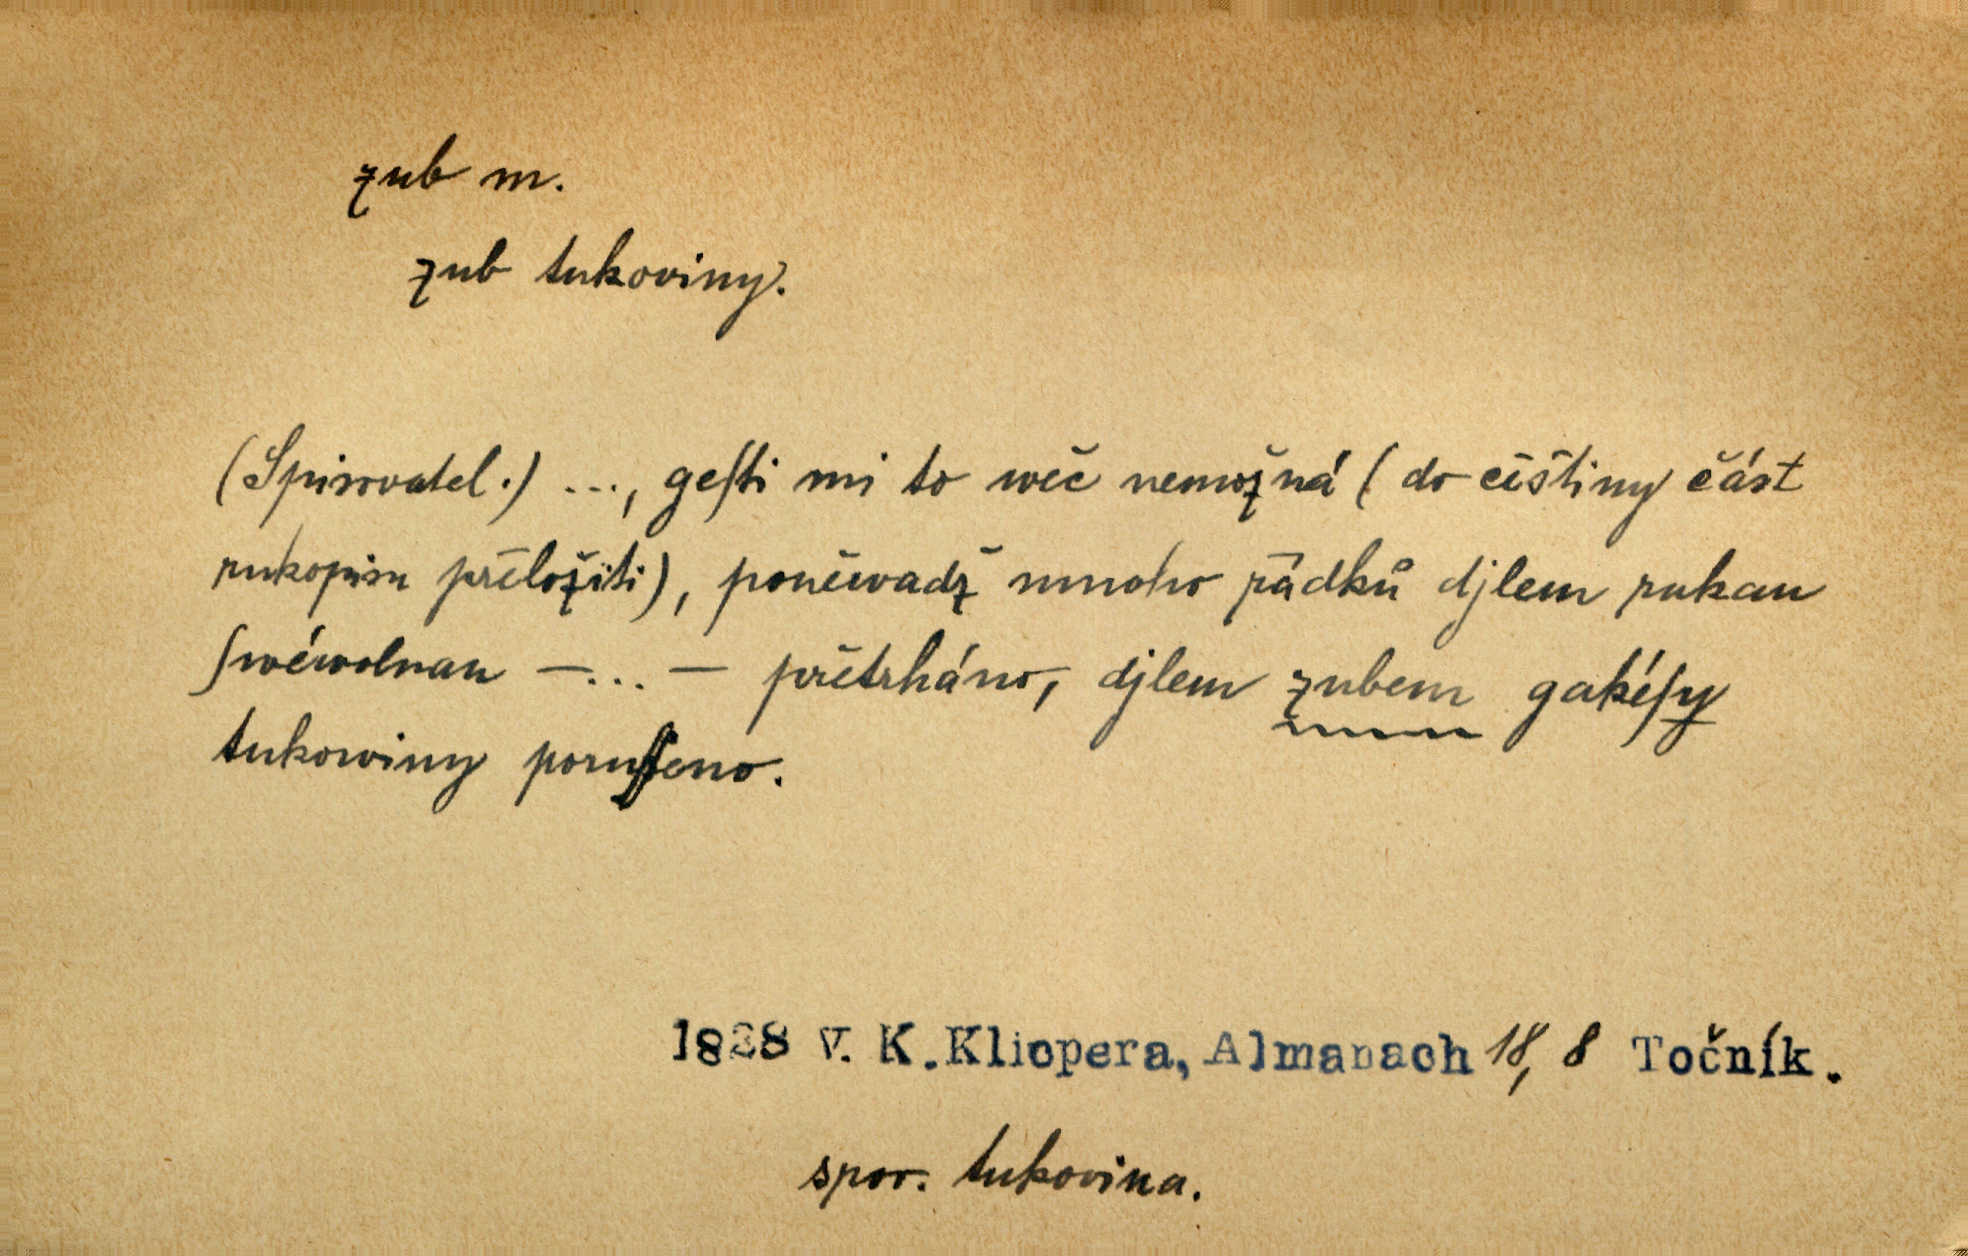 zub m.
zub tukoviny.
(Spisovatel.) ..., geſti mi to wěc nemožná ( do češtiny část
rukopisu přeložiti), poněwadž mnoho řádků djlem rukau
ſwéwolnau —...— přetrháno, djlem zubem gakéſy
tukowiny poruſſeno.
1828 V. K. Klicpera, Almanach 18, 8 Točník.
spor. tukovina.